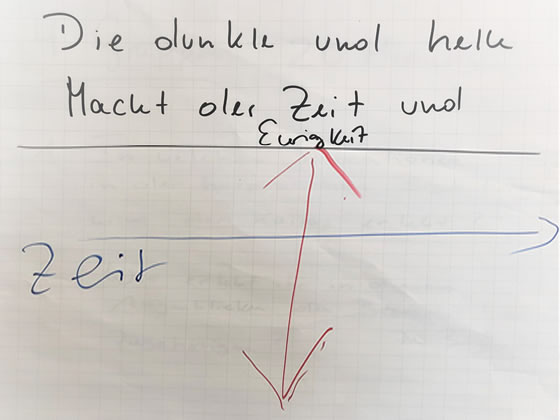 Die dunkle und helle
Macht der Zeit und
Ewigkeit
Zeit